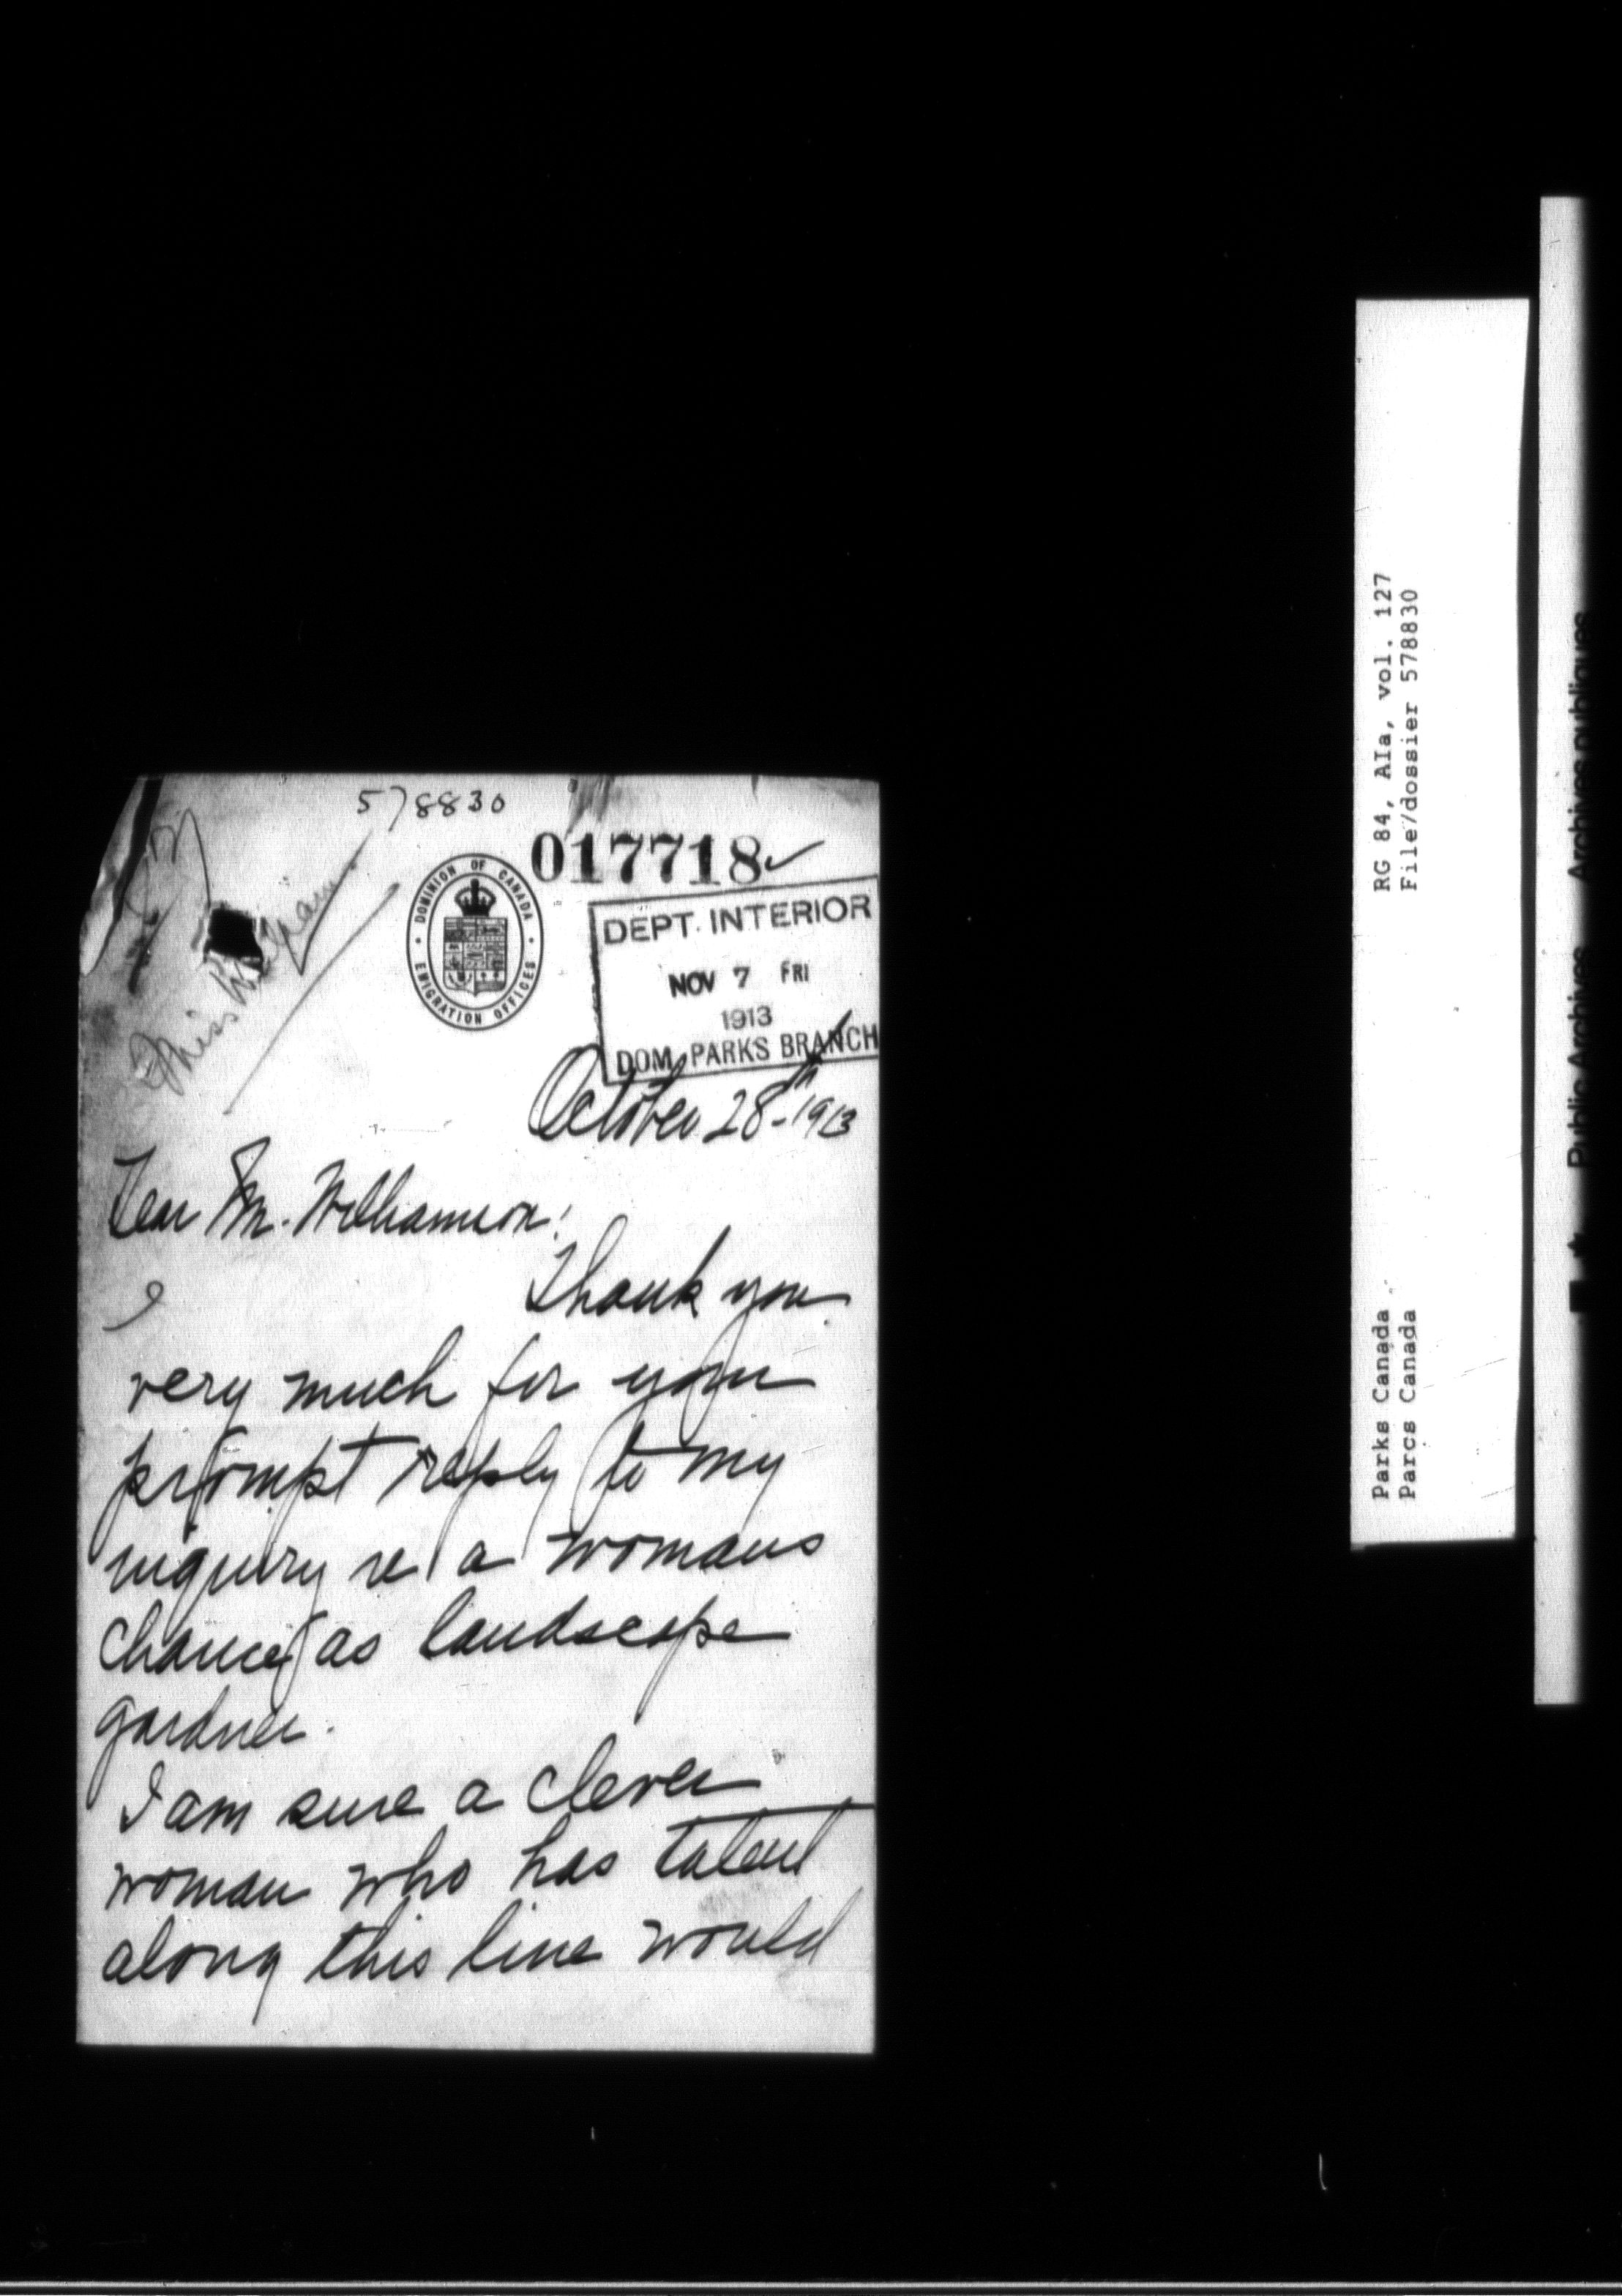 578830
017718
DOMINION OF CANADA
EMIGRATION OFFICES
DEPT. INTERIOR
NOV 7 FRI
1913
DOM. PARKS BRANCH
Miss
October 28th 1913
Dear Mr. Williamson:
Thank you
very much for your
prompt reply to my
inquiry re a womans
chance as landscape
gardner.
I am sure a clever
woman who has talent
along this line would
RG 84, A1a, vol. 127
File/dossier 578830
Parks Canada
Parcs Canada
Public Archives Archives publiques